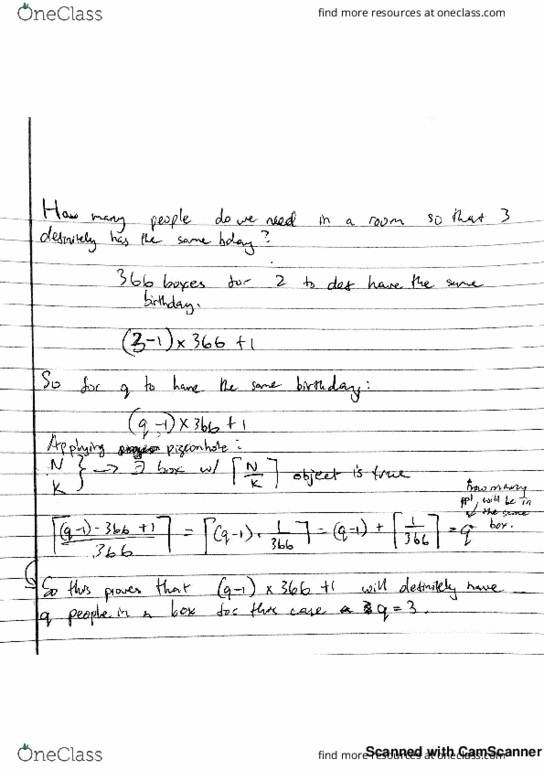 OneClass
find more resources at oneclass.com
How many people do we need in a room so that 3
definitely has the same bday?
366 boxes for 2 to def have the same
birthday.
(3-1) × 366 + 1
So for q to have the same birthday:
(q-1) × 366 + 1
Applying pigeonhole:
N
K } → ∃ box w/ ⌈N/K⌉ object is true
how many
ppl will be in
the same
box.
⌈(q-1) - 366 + 1 / 366⌉ = ⌈(q-1) · 1/366⌉ = (q-1) + ⌈1/366⌉ = q
So this proves that (q-1) × 366 + 1 will definitely have
q people in a box for this case q = 3.
OneClass
find more resources at oneclass.com
Scanned with CamScanner